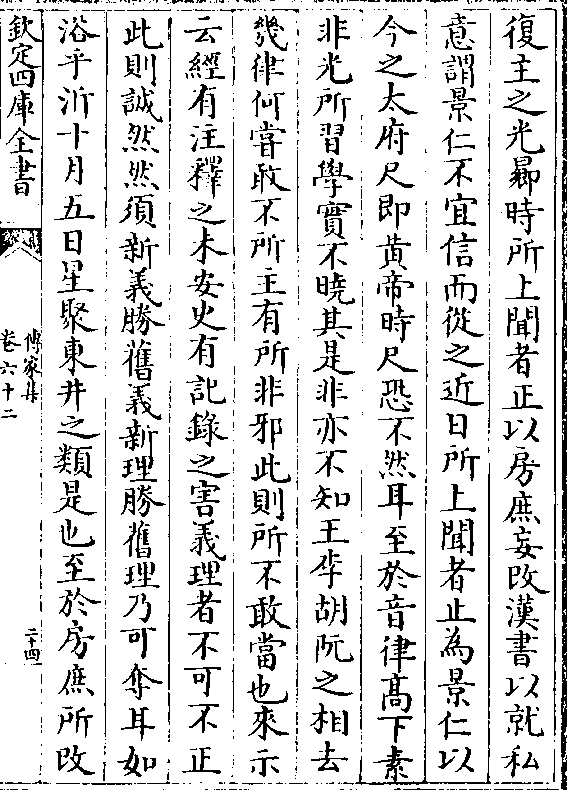 復主之光曏時所上聞者正以房庶妄改漢書以就私
意謂景仁不宜信而從之近日所上聞者止為景仁以
今之太府尺即黄帝時尺恐不然耳至於音律髙下素
非光所習學實不曉其是非亦不知王李胡阮之相去
幾律何嘗敢不所主有所非邪此則所不敢當也來示
云經有注釋之未安史有記錄之害義理者不可不正
此則誠然然須新義勝舊義新理勝舊理乃可奪耳如
浴乎沂十月五日星聚東井之類是也至於房庶所改
欽定四庫全書
傳家集
卷六十二
二十四